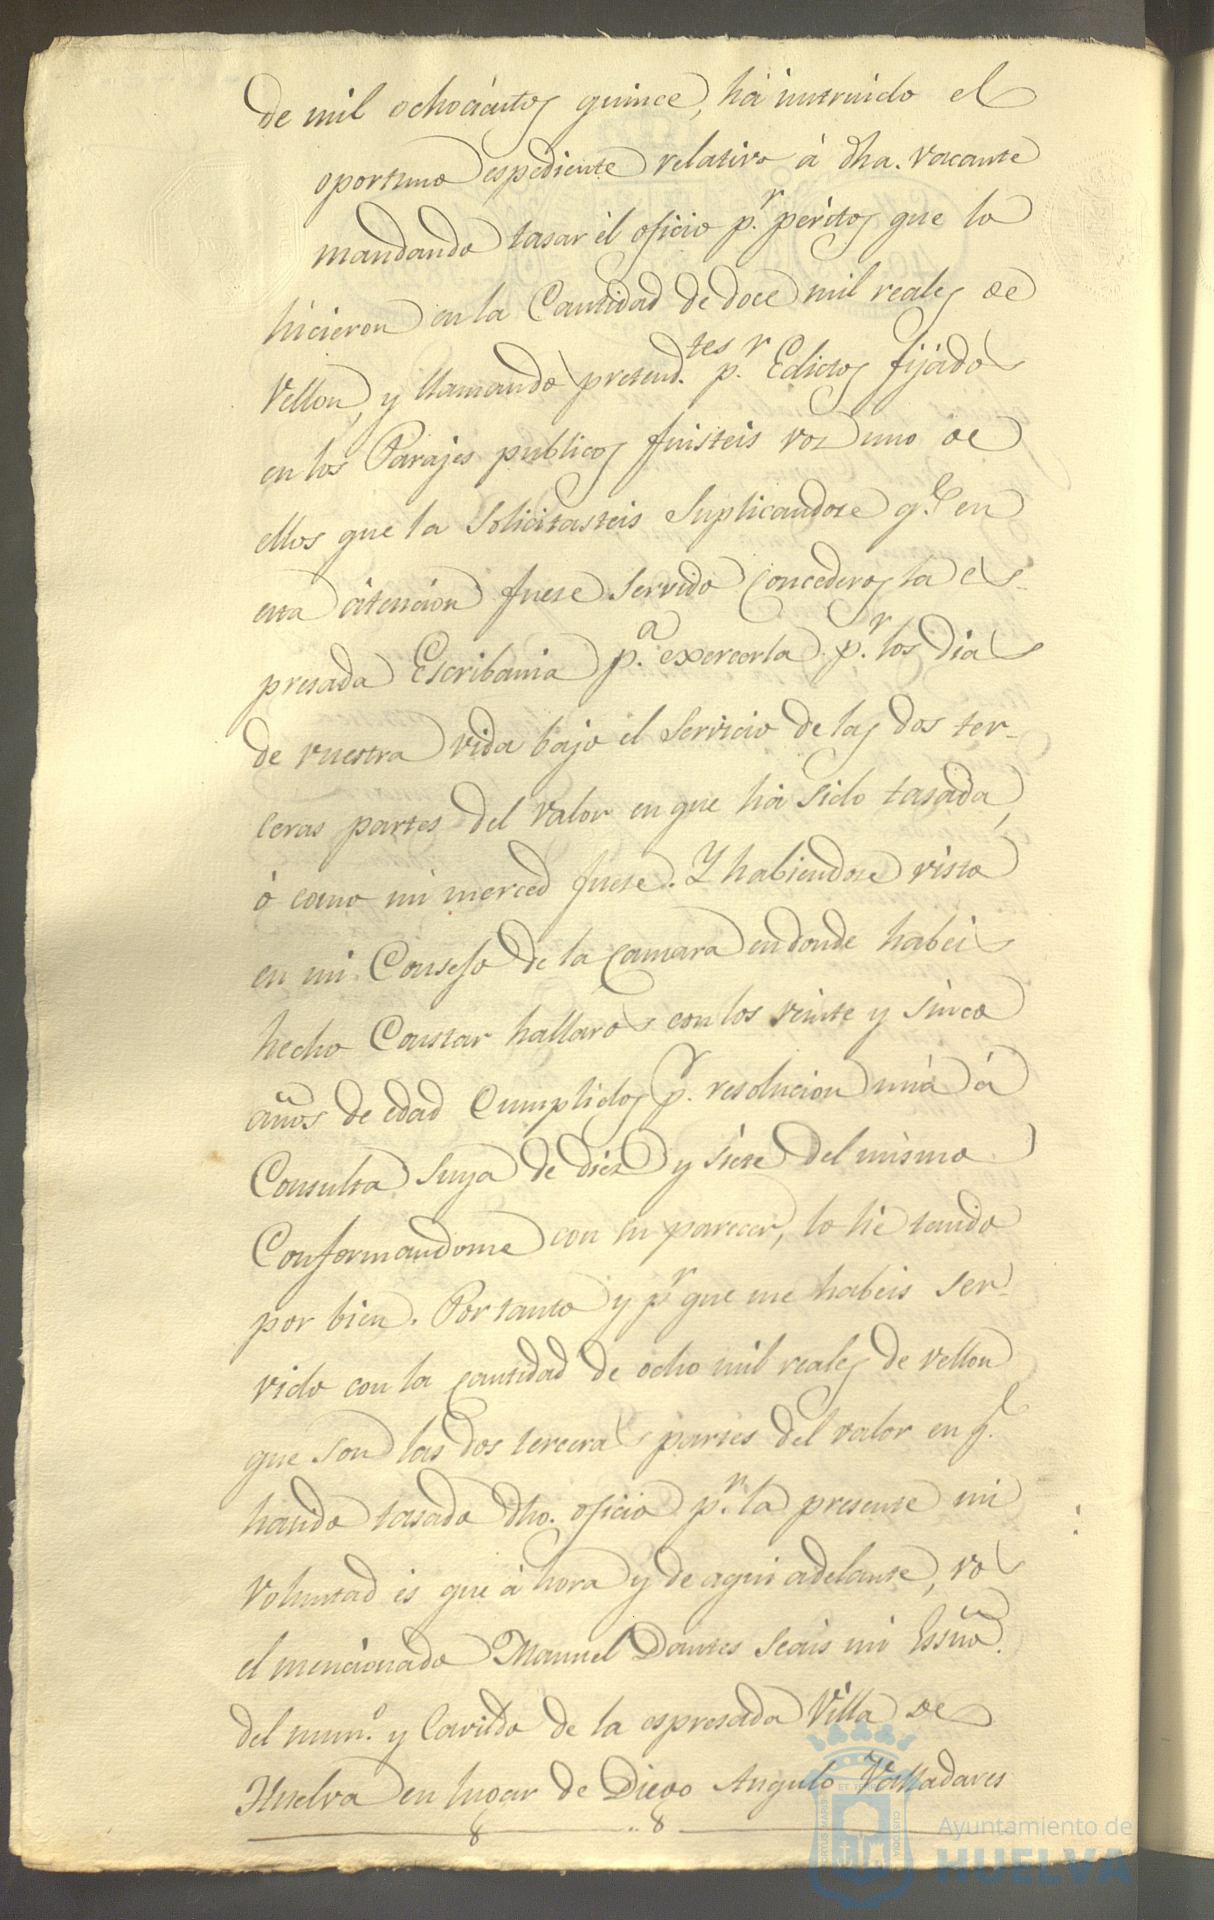 de mil ochocientos quince, há instruido el
oportuno espediente relativo á dha. vacante
mandando tasar el oficio p.r peritos que lo
hicieron en la Cantidad de doce mil reales de
Vellon, y llamando pretend.tes p.r Edictos fijados
en los Parajes publicos fuisteis vos uno de
ellos que la Solicitasteis Suplicandose q.e en
esta atencion fuese Servido Concederos la es-
presada Escribania p.a exercerla p.r los dias
de vuestra vida bajo el Servicio de las dos ter-
ceras partes del Valor en que há sido tasada,
ó como mi merced fuese. Y habiendose visto
en mi Consejo de la Camara en donde habeis
hecho Constar hallaros con los veinte y sinco
años de edad Cumplidos p.r resolucion mia á
Consulta Suya de diez y siete del mismo
Conformandome con su parecer, lo hé tenido
por bien. Por tanto y p.r que me habeis Ser-
vido con la Cantidad de ocho mil reales de vellon
que son las dos terceras partes del valor en q.e
ha sido tasado dho. oficio p.r la presente mi
Voluntad es que á hora y de aqui adelante, vos
el mencionado Manuel Dantes Seais mi Essño.
del num.o y Cavildo de la espresada Villa de
Huelva en lugar de Diego Angulo Valladares
Ayuntamiento de
HUELVA